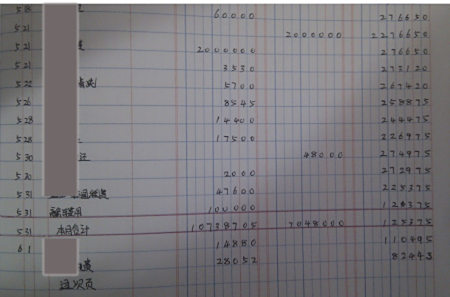 5 18 60000 276650
5 21 2000000 2276650
5 21 2000000 276650
5 21 3530 273120
5 22 5700 267420
5 26 8545 258875
5 28 14400 244475
5 28 17500 226975
5 30 48000 274975
5 30 2000 272975
5 31 47600 225375
5 31 100000 125375
5 31 本月合计 10738705 7048000 125375
6 1 14880 110495
28052 82443
过次页